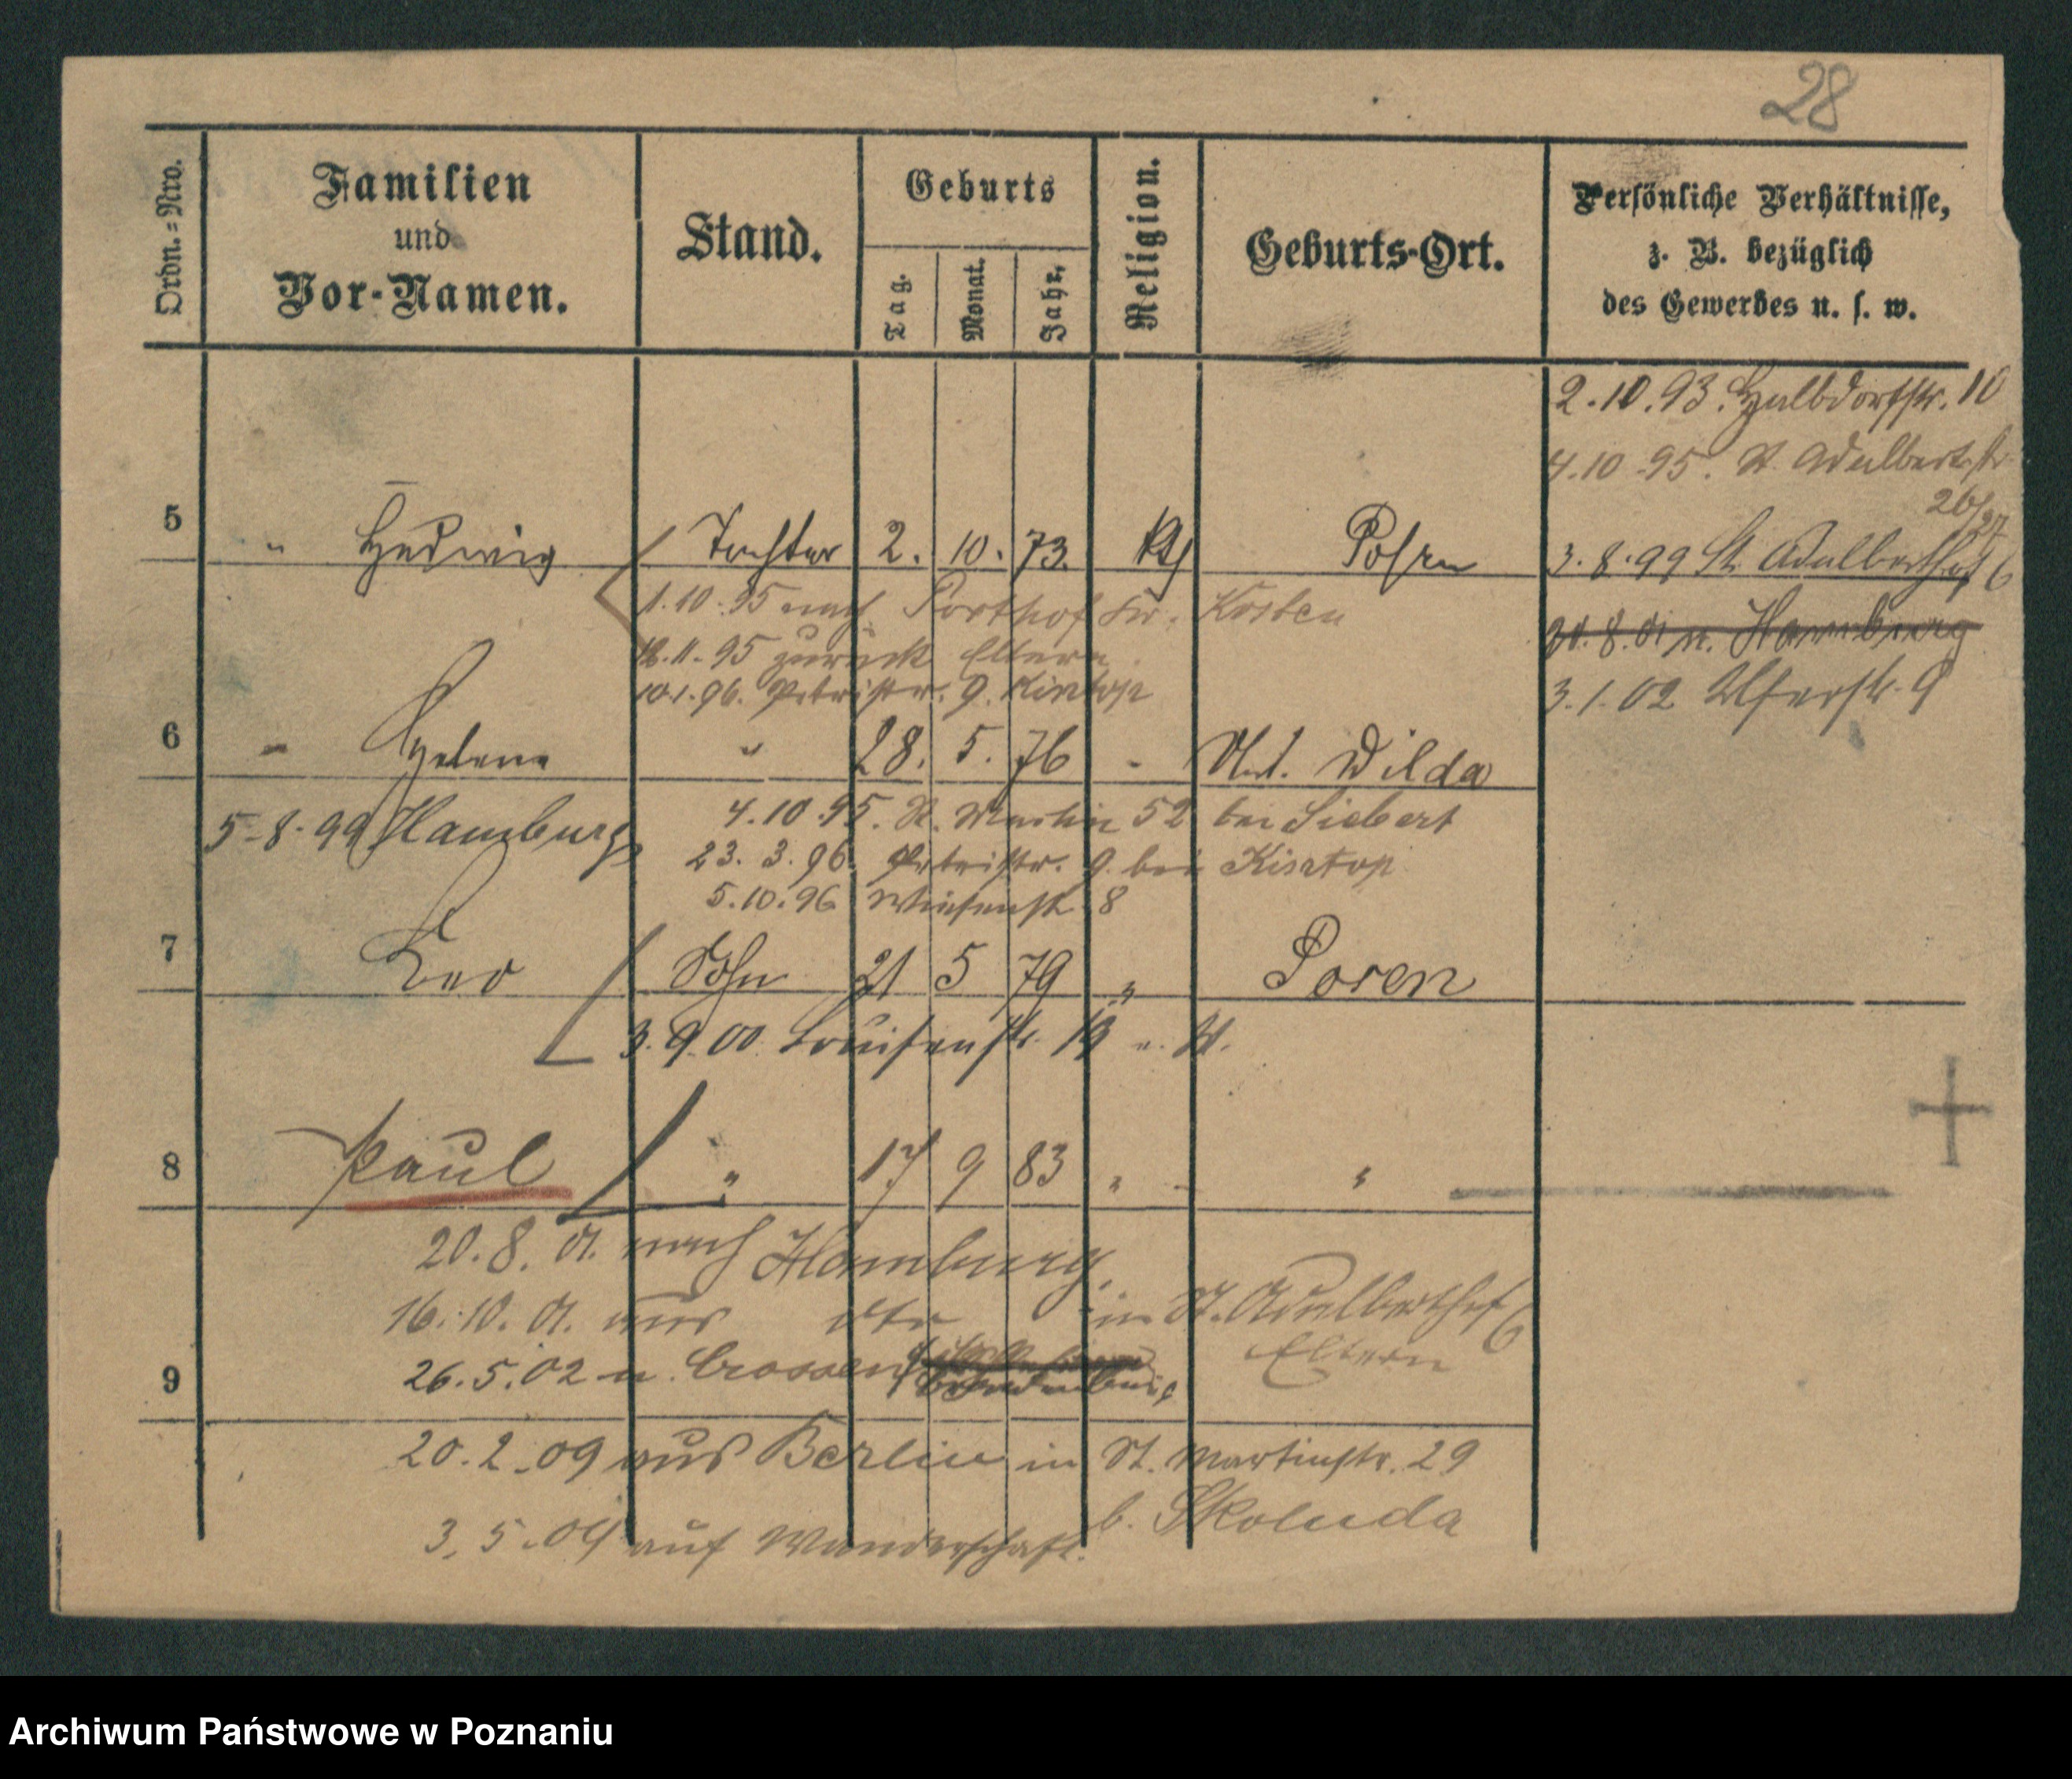 28
Ordn.=Nro.
Familien
und
Vor-Namen.
Stand.
Geburts
Tag.
Monat.
Jahr.
Religion.
Geburts-Ort.
Persönliche Verhältnisse,
z. B. bezüglich
des Gewerbes u. s. w.
2.10.93. Halbdorfstr. 10
4.10.95. St. Adalbertstr.
26/27
5 " Hedwig Tochter 2. 10. 73. kth Posen
3.8.99 St. Adalberthof 6
1.10.95 nach Kr. Kosten
20.8.01 n. Hamburg
12.11.95 zurück Eltern
10.1.96. Petristr. 9. Kintop
3.1.02
6 " Helene " 28. 5. 76 " Unt. Wilda
5-8-99 Hamburg
4.10.95. St. Martin 52 bei Siebert
23.3.96. Petristr. 9. bei Kintop
5.10.96 Wiesenstr 8
7 Leo Sohn 21 5 79 " Posen
3.9.00. Louisenstr. 19
8 Paul " 17 9 83 " "
20.8.01. nach Hamburg.
16.10.01. aus dto in St. Adalberthof 6
Eltern
9
26.5.02 n. Crossen
20.2.09 aus Berlin in St. Martinstr. 29
b. Skoluda
3.5.09 auf Wanderschaft.
Archiwum Państwowe w Poznaniu